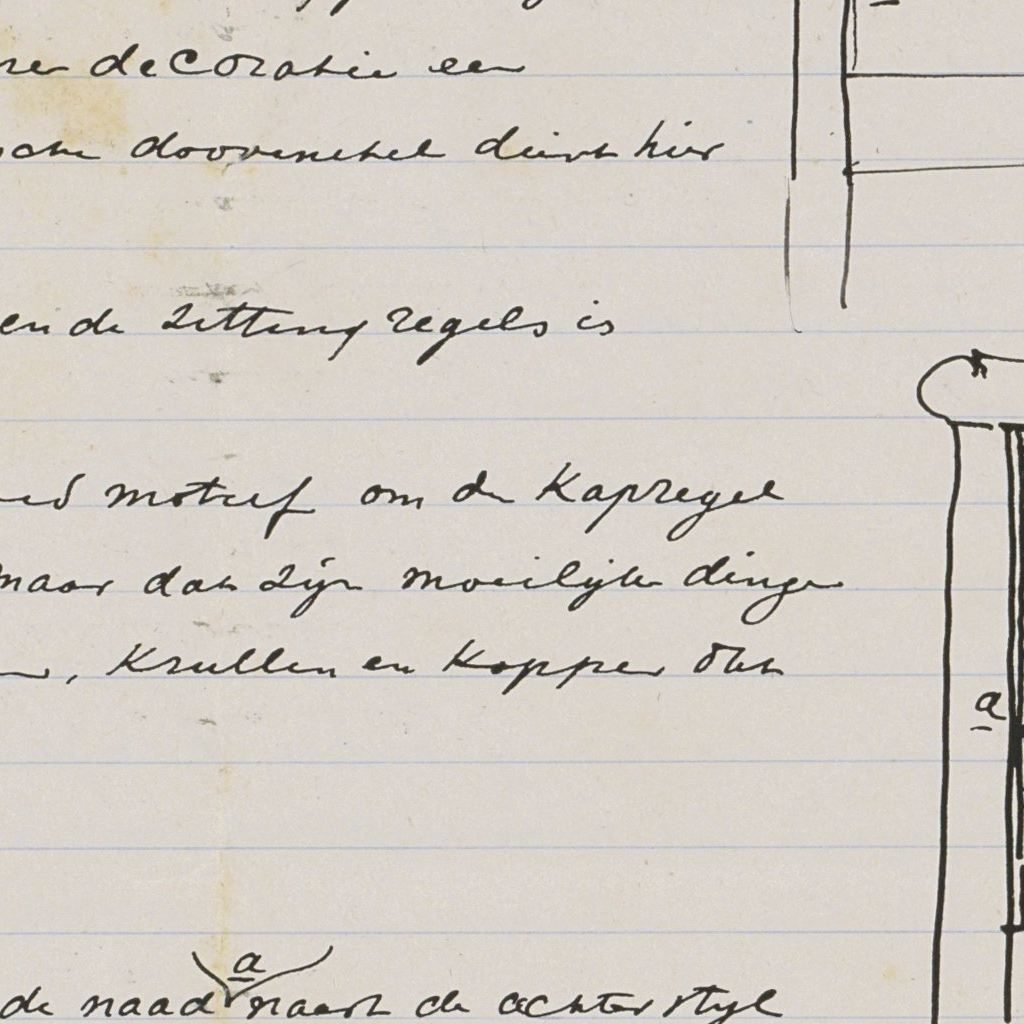 decoratie een
doorenekel dient hier
ende zitting regels is
motief om de Kapregel
maar dat zijn moeilijke dingen
, Krullen en Koppen
a
a
de naad naast de achterstyl